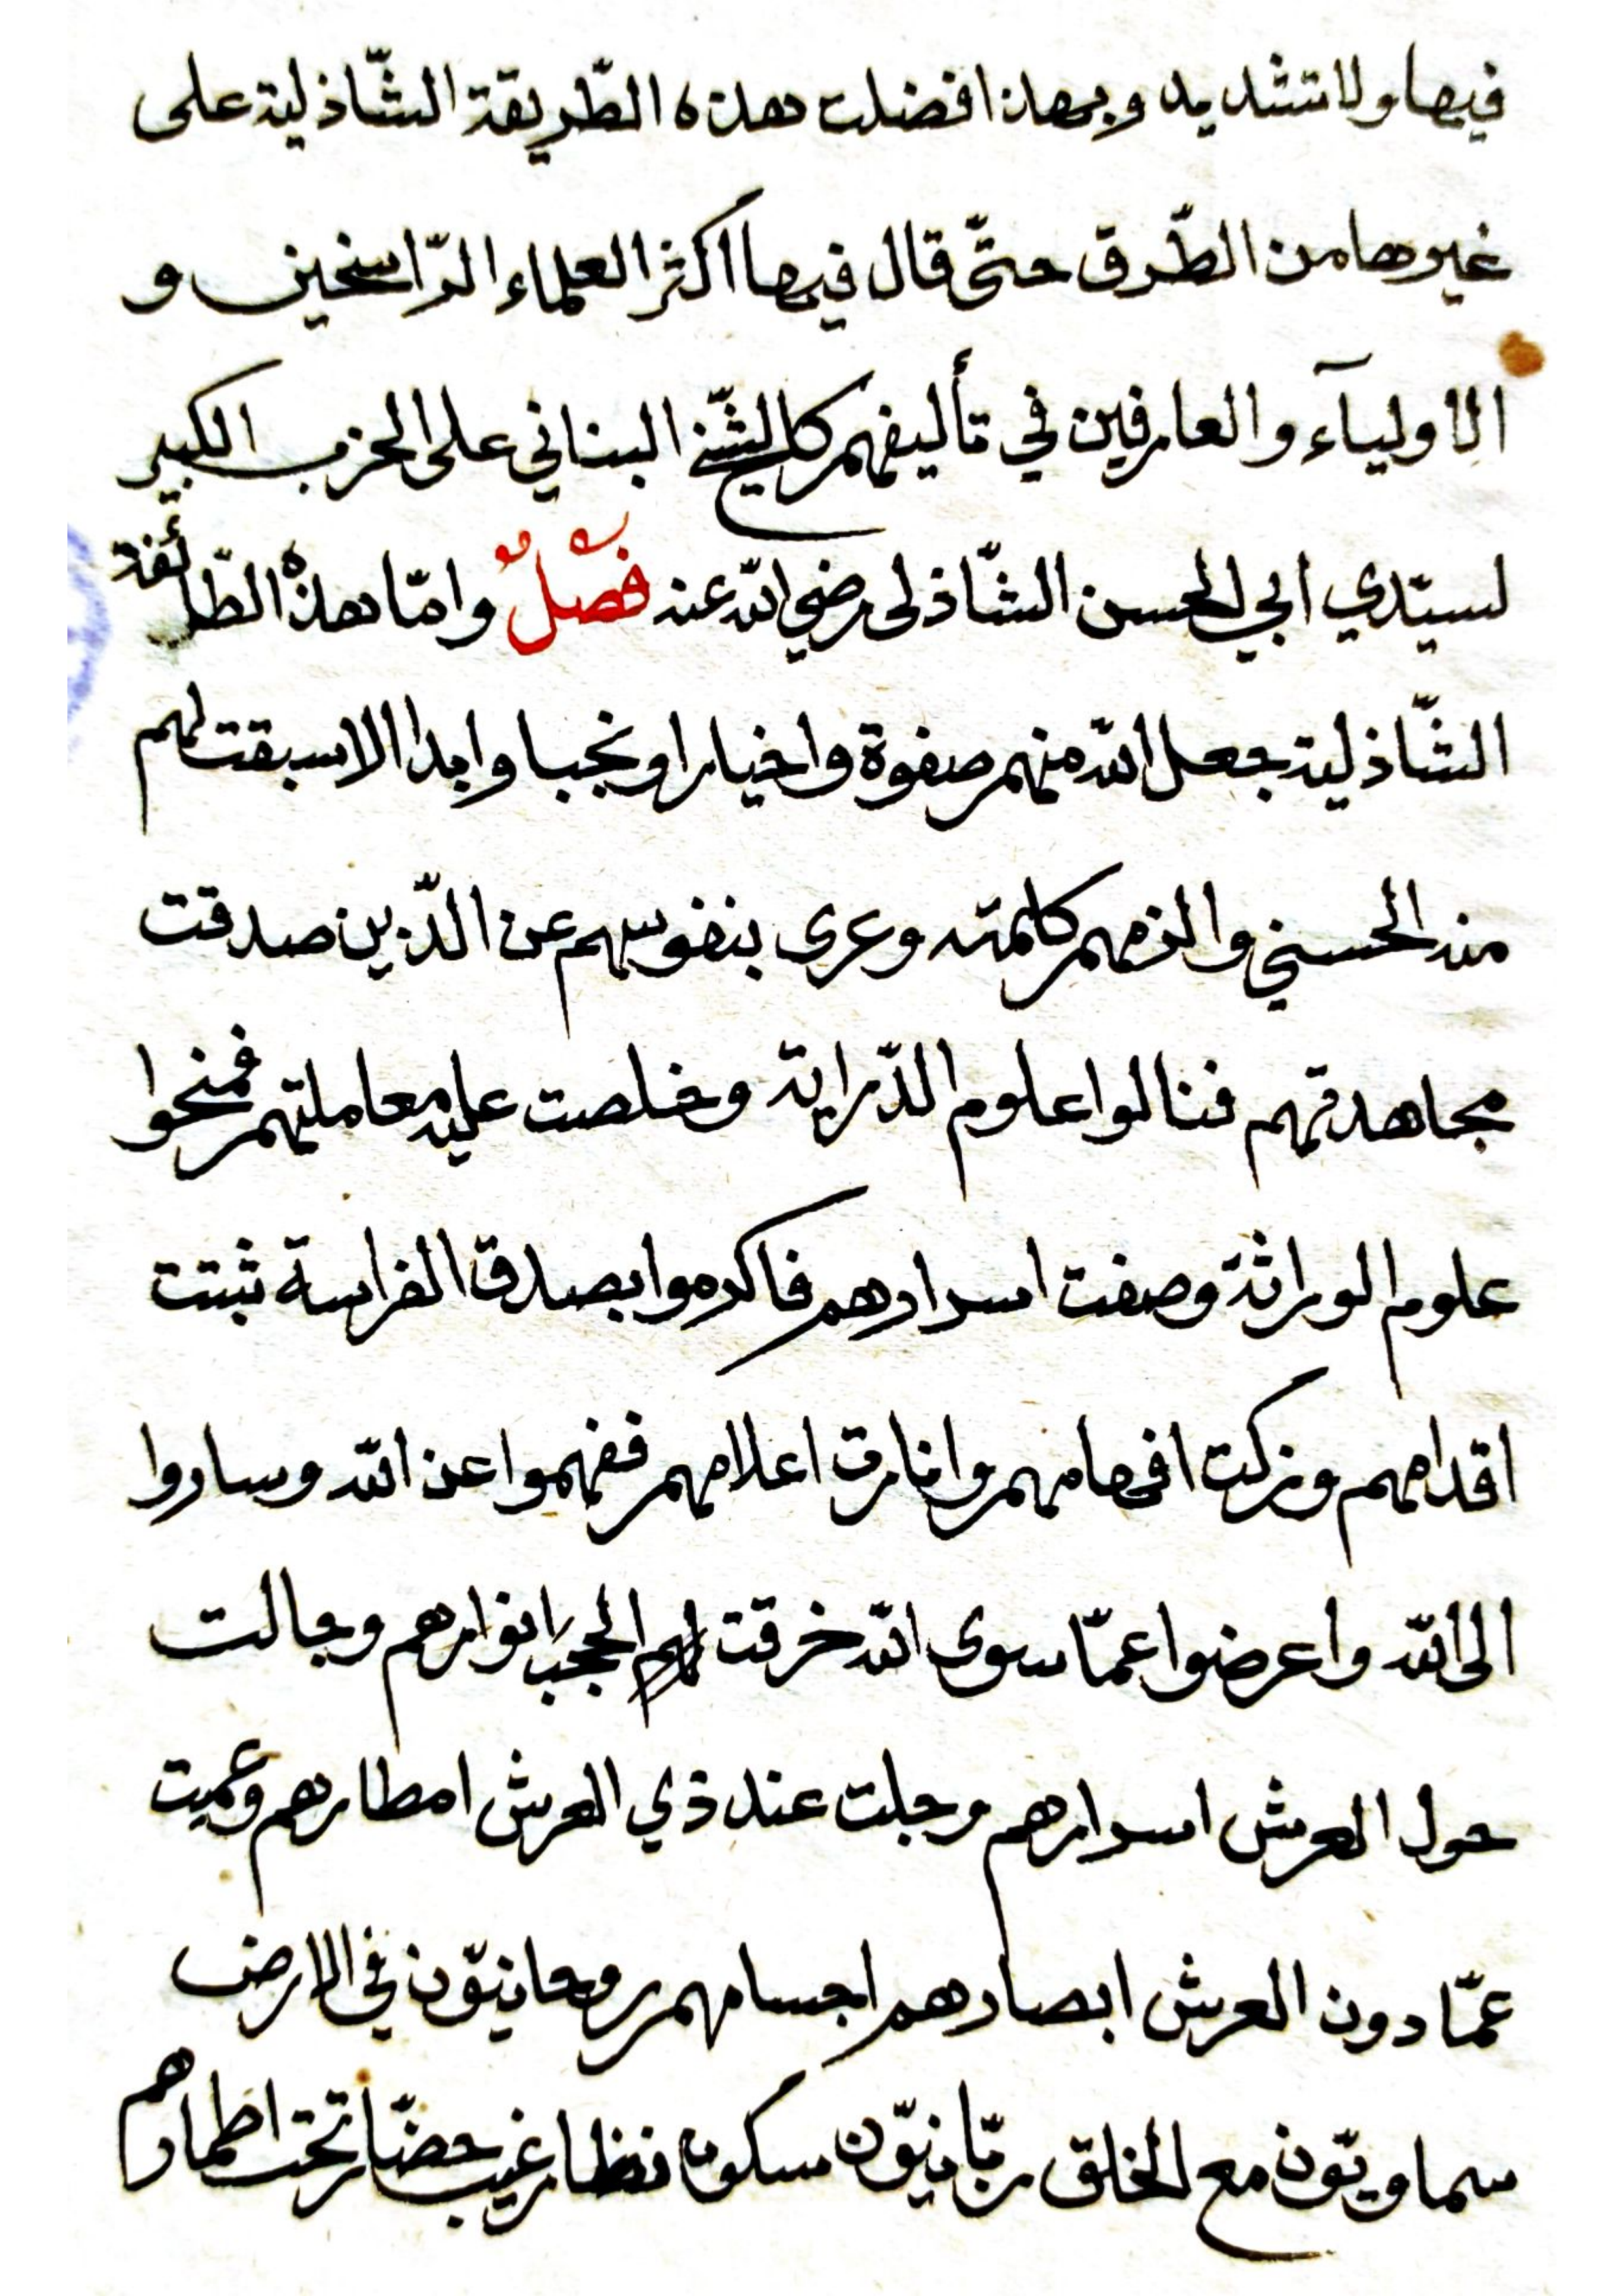 فيها ولا تشديد وبهذا فضلت هذه الطّريقة الشّاذلية على
غيرها من الطّرق حتّى قال فيها اكثر العلماء الرّاسخين و
الاوليآء والعارفين في تأليفهم كالشّيخ البناني على الحزب الكبير
لسيّدي ابي الحسن الشّاذلى رضي الله عنه فصْلٌ وامّا هذه الطّائفة
الشّاذلية جعل الله منهم صفوة واخيارا ونجبا وابدالا سبقت لهم
منه الحسني والزمهم كلمته وعرى بنفوسهم عن الدّين صدقت
مجاهدتهم فنالوا علوم الدّراية وخلصت عليه معاملتهم فمنحوا
علوم الوراثة وصفت اسرارهم فاكرموا بصدق الفراسة ثبتت
اقدامهم وزكت افهامهم وانارت اعلامهم ففهموا عن الله وساروا
الى الله واعرضوا عمّا سوى الله خرقت الحجب انوارهم وجالت
حول العرش اسرارهم وجلت عند ذي العرش امطارهم وعميت
عمّا دون العرش ابصارهم اجسامهم روحانيّون في الارض
سماويّون مع الخلق ربّانيّون سكوت نظار غيب حضّار تحت اطمارهم